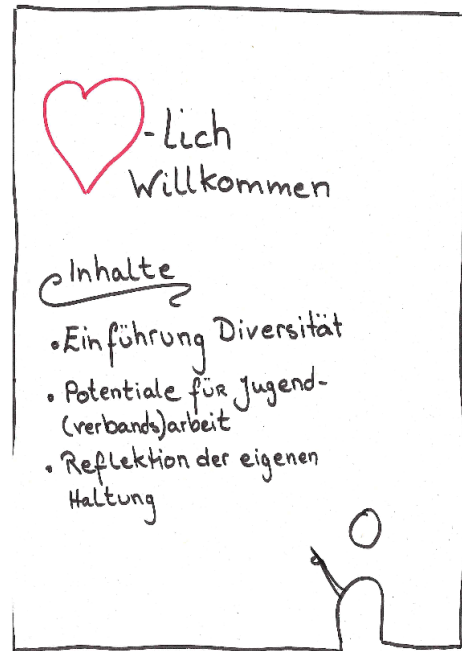 -lich
Willkommen
Inhalte
• Einführung Diversität
• Potentiale für Jugend-
(verbands)arbeit
• Reflektion der eigenen
Haltung